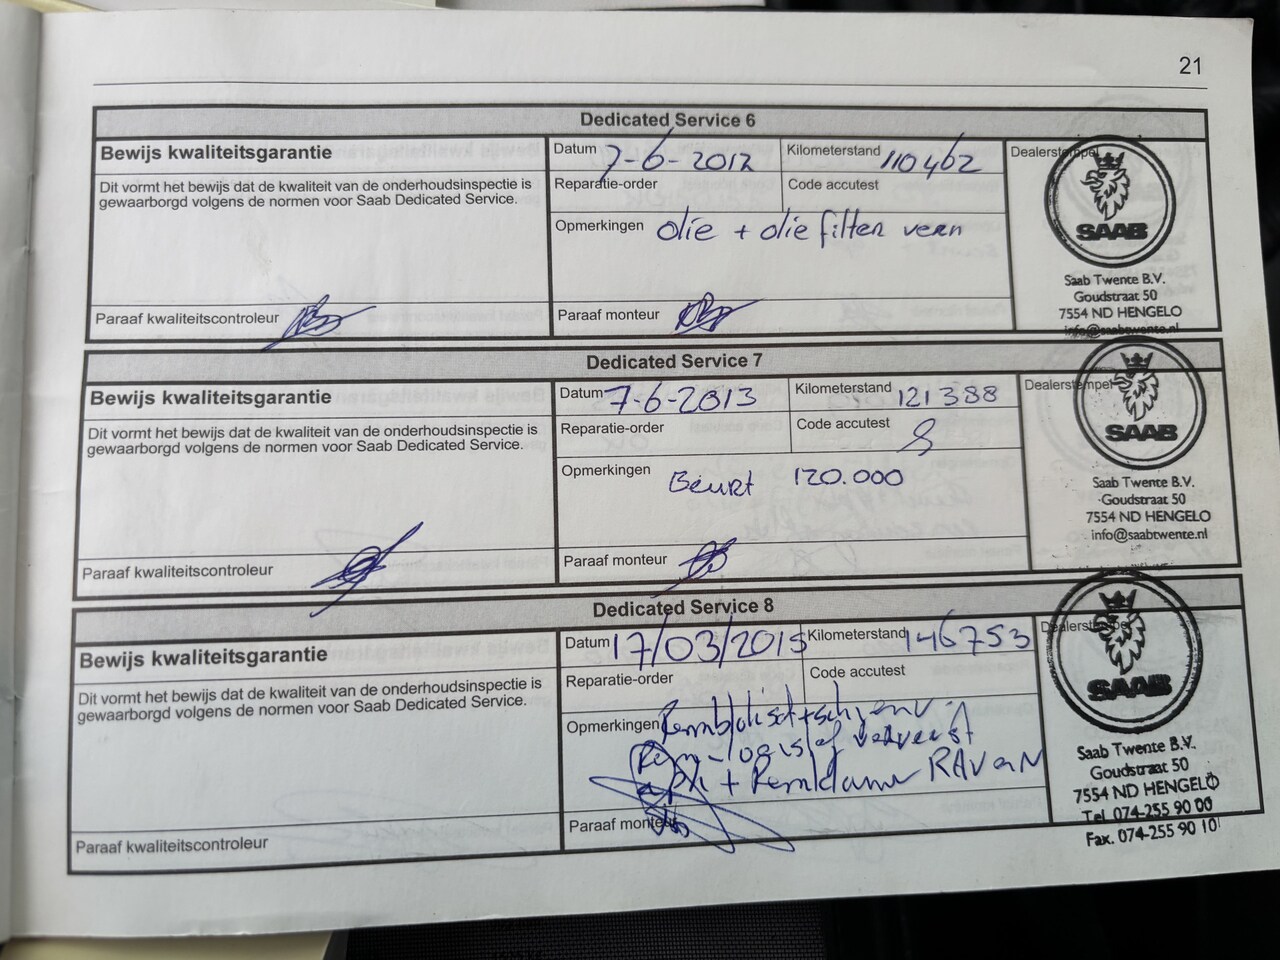 21
Dedicated Service 6
Bewijs kwaliteitsgarantie
Dit vormt het bewijs dat de kwaliteit van de onderhoudsinspectie is
gewaarborgd volgens de normen voor Saab Dedicated Service.
Paraaf kwaliteitscontroleur
Datum 7-6-2012
Kilometerstand 110462
Reparatie-order
Code accutest
Opmerkingen olie + olie filter vern
Paraaf monteur
Dealerstempel
SAAB
Saab Twente B.V.
Goudstraat 50
7554 ND HENGELO
info@saabtwente.nl
Dedicated Service 7
Bewijs kwaliteitsgarantie
Dit vormt het bewijs dat de kwaliteit van de onderhoudsinspectie is
gewaarborgd volgens de normen voor Saab Dedicated Service.
Paraaf kwaliteitscontroleur
Datum 7-6-2013
Kilometerstand 121388
Reparatie-order
Code accutest
Opmerkingen Beurt 120.000
Paraaf monteur
Dealerstempel
SAAB
Saab Twente B.V.
Goudstraat 50
7554 ND HENGELO
info@saabtwente.nl
Dedicated Service 8
Bewijs kwaliteitsgarantie
Dit vormt het bewijs dat de kwaliteit van de onderhoudsinspectie is
gewaarborgd volgens de normen voor Saab Dedicated Service.
Paraaf kwaliteitscontroleur
Datum 17/03/2015
Kilometerstand 146753
Reparatie-order
Code accutest
Opmerkingen
+ RAVEN
Paraaf monteur
Dealerstempel
SAAB
Saab Twente B.V.
Goudstraat 50
7554 ND HENGELO
Tel. 074-255 90 00
Fax. 074-255 90 10